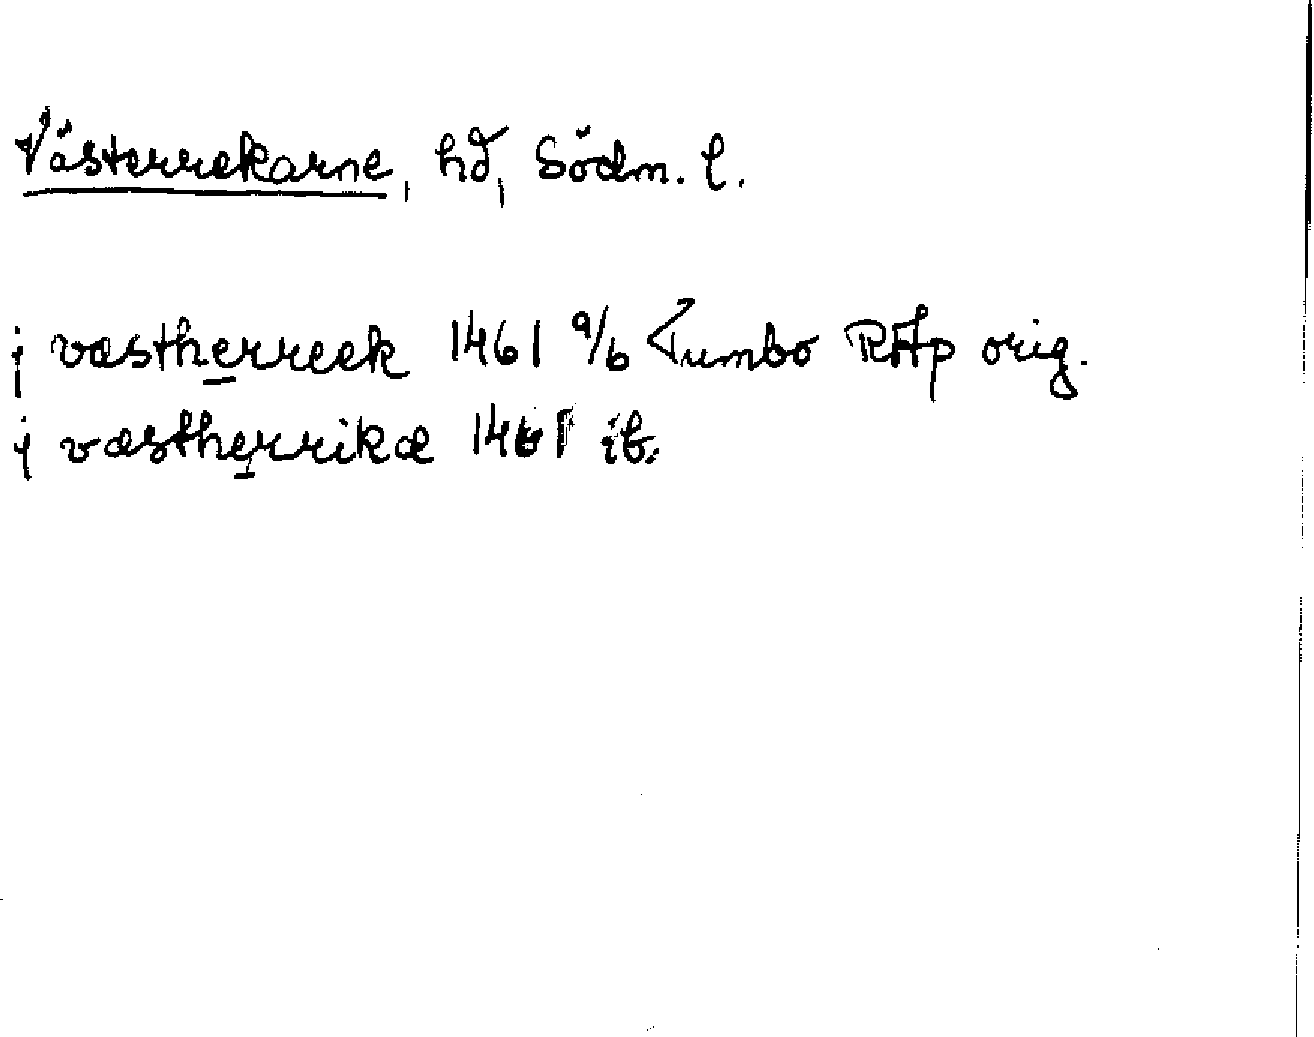 Västerrekarne, hd, Södm. l.
j væstherreek 1461 9/6 Tumbo RAp orig.
j væstherrikæ 1461 ib.